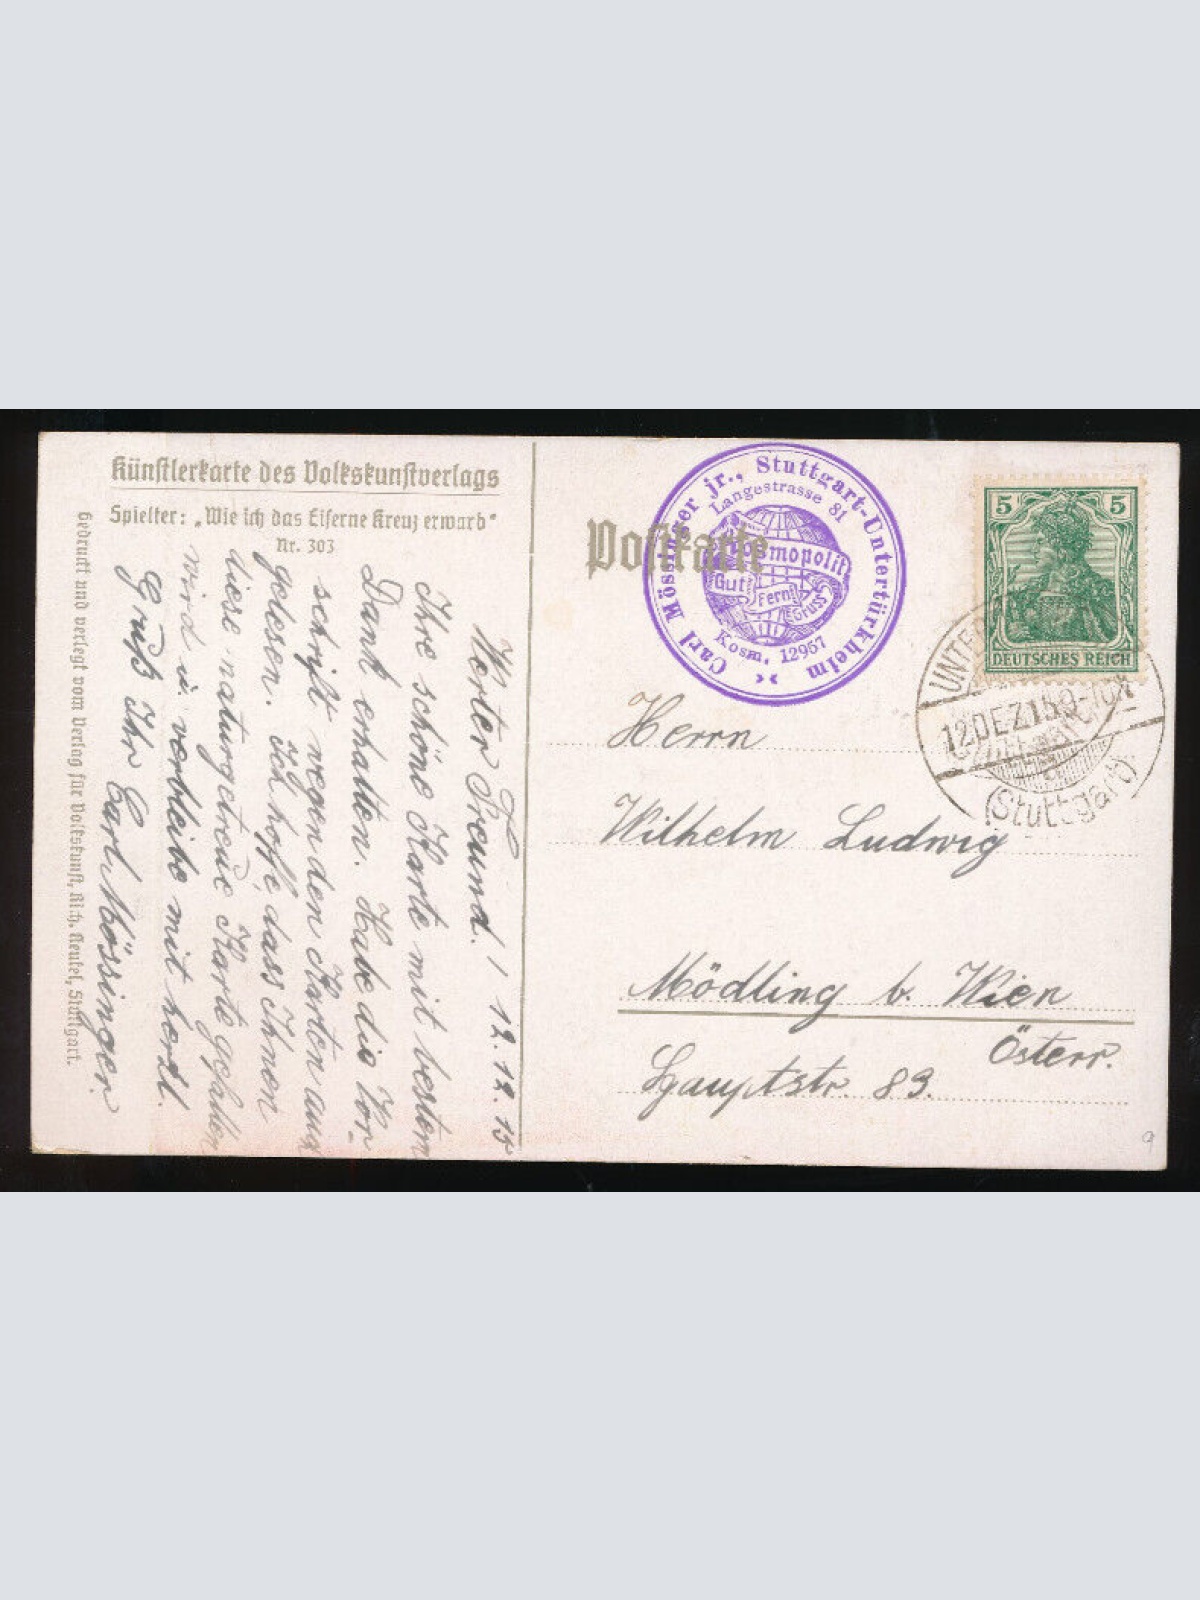 Künstlerkarte des Volkskunstverlags
Spielter: „Wie ich das Eiserne Kreuz erwarb“
Nr. 303
Gedruckt und verlegt vom Verlag für Volkskunst, Rich. Keutel, Stuttgart.
12.12.15
Werter Freund!
Ihre schöne Karte mit bestem
Dank erhalten. Habe die Vor-
schrift wegen den Karten auch
gelesen. Ich hoffe, dass Ihnen
diese naturgetreue Karte gefallen
wird u. verbleibe mit herzl.
Gruß Ihr Carl Mössinger.
Postkarte
Carl Mössinger jr., Stuttgart-Untertürkheim
Langestrasse 81
Kosmopolit
Gut Fern Gruss
Kosm. 12957
5 5
DEUTSCHES REICH
12 DEZ 15 9-10
(Stuttgart)
Herrn
Wilhelm Ludwig
Mödling b. Wien
Österr.
Hauptstr. 83.
9